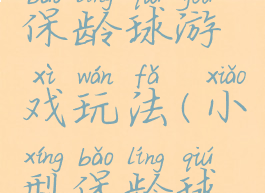 保龄球游
xì wán fǎ xiǎo
戏玩法(小
xíng bǎo líng qiú
型保龄球